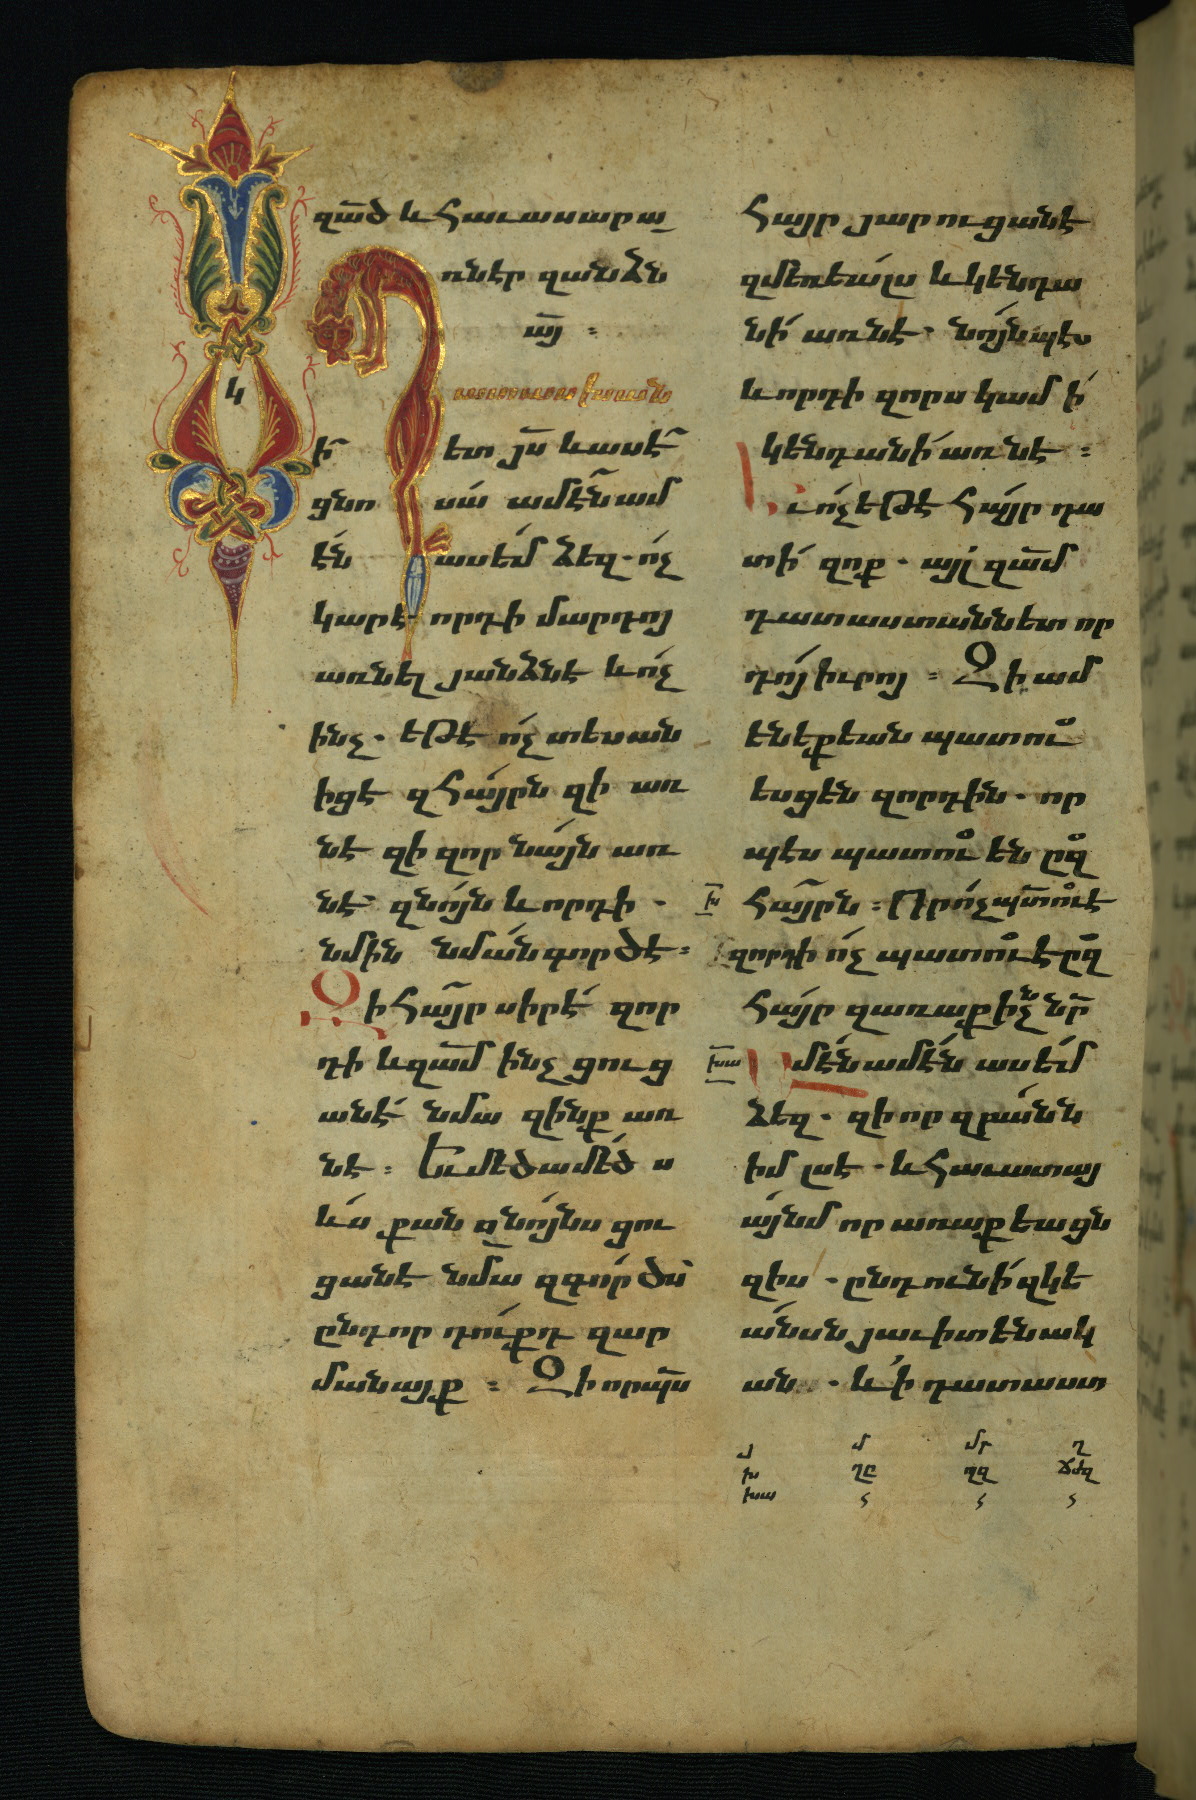 զած և հաւասարա
ռնէր զանձն
այ ։
կ
ետ յս և ասէ
ցնո սա ամէն ամ
էն ասեմ ձեզ. ոչ
կարէ որդի մարդոյ
առնել յանձնէ և ոչ
ինչ. եթէ ոչ տեսան
իցէ զհայրն զի առ
նէ զի զոր նայն առ
նէ զնոյն և որդի.
նմին նման գործէ։
Զի հայր սիրէ զոր
դի և զամ ինչ ցուց
անէ նմա զինք առ
նէ։ Եւ մեծամեծ ս
ևս քան զնոյնս ցու
ցանէ նմա զգործս
ընդ որ դուքդ զար
մանայք ։ Զի որպս
հայր յարուցանէ
զմեռեալս և կենդա
նի առնէ. նոյնպէս
և որդի զորս կամ ի
կենդանի առնէ ։
Եւ ոչ եթէ հայր դա
տի զոք. այլ զամ
դատաստան ետ որ
դոյ իւրոյ ։ Զի ամ
ենեքեան պատու
եսցեն զորդին. որ
պէս պատուեն ըզ
խ հայրն ։ Որ ոչ պատուէ
զորդի ոչ պատուէ ըզ
հայր զառաքիչն նր
խա Ամէն ամէն ասեմ
ձեզ. զի որ զբանն
իմ լսէ. և հաւատայ
այնմ որ առաքեացն
զիս. ընդունի զկե
անսն յաւիտենակ
ան. և ի դատաստ
յ մ մր ղ
խ ղը ղզ ճժզ
խա ς ς ς